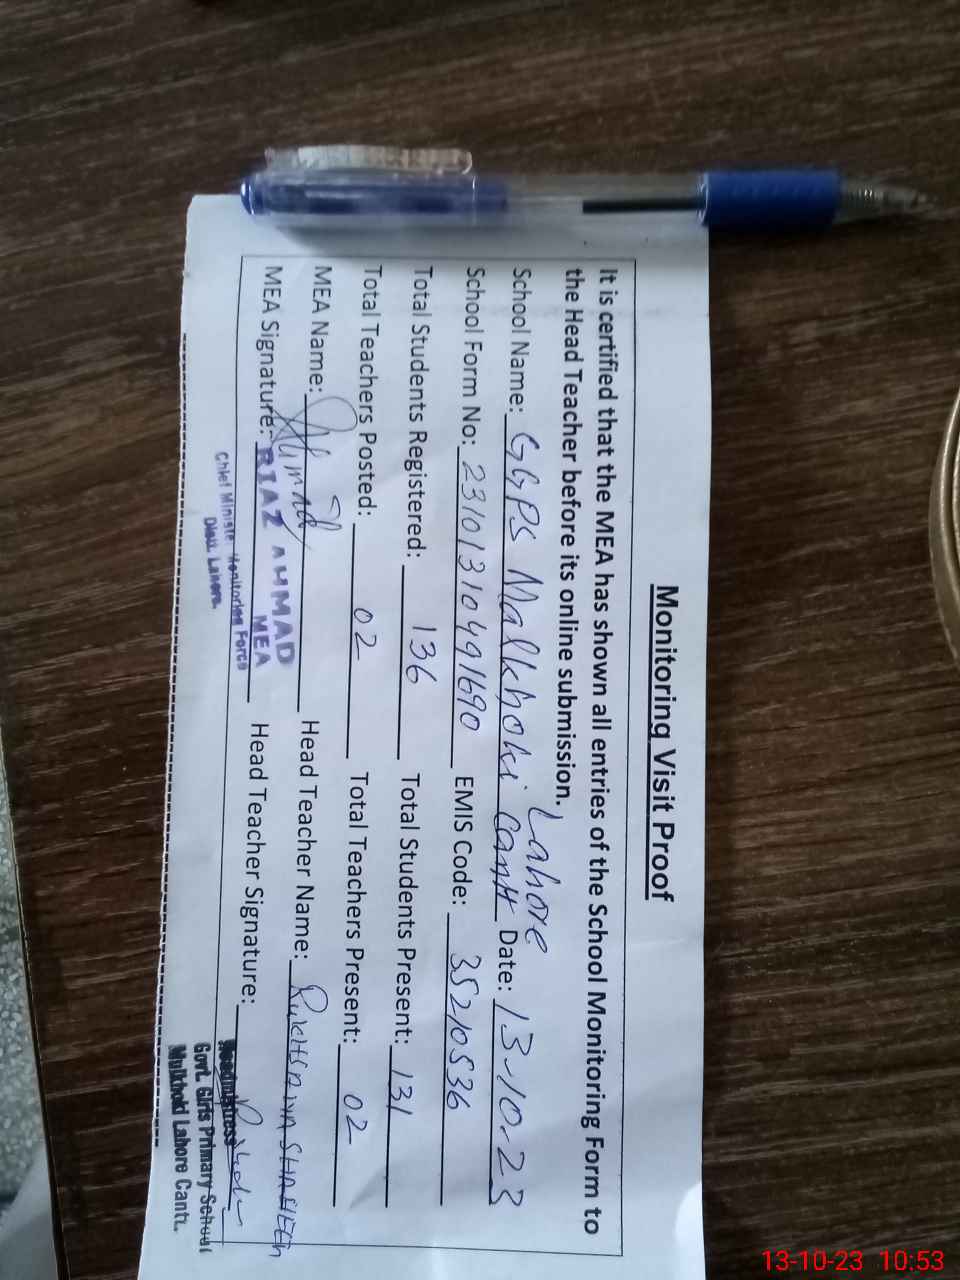 Monitoring Visit Proof
It is certified that the MEA has shown all entries of the School Monitoring Form to
the Head Teacher before its online submission.
School Name: GGPS Malkhohi Cantt Lahore Date: 13-10-23
School Form No: 2310131049 1690 EMIS Code: 35210536
Total Students Registered: 136 Total Students Present: 131
Total Teachers Posted: 02 Total Teachers Present: 02
MEA Name: Head Teacher Name: RUKHSANA SHAHEEN
MEA Signature: Head Teacher Signature:
RIAZ AHMAD
MEA
Chief Ministe Monitoring Force
Distt. Lahore.
Headmistress
Govt. Girls Primary School
Mulkhoki Lahore Cantt.
13-10-23 10:53